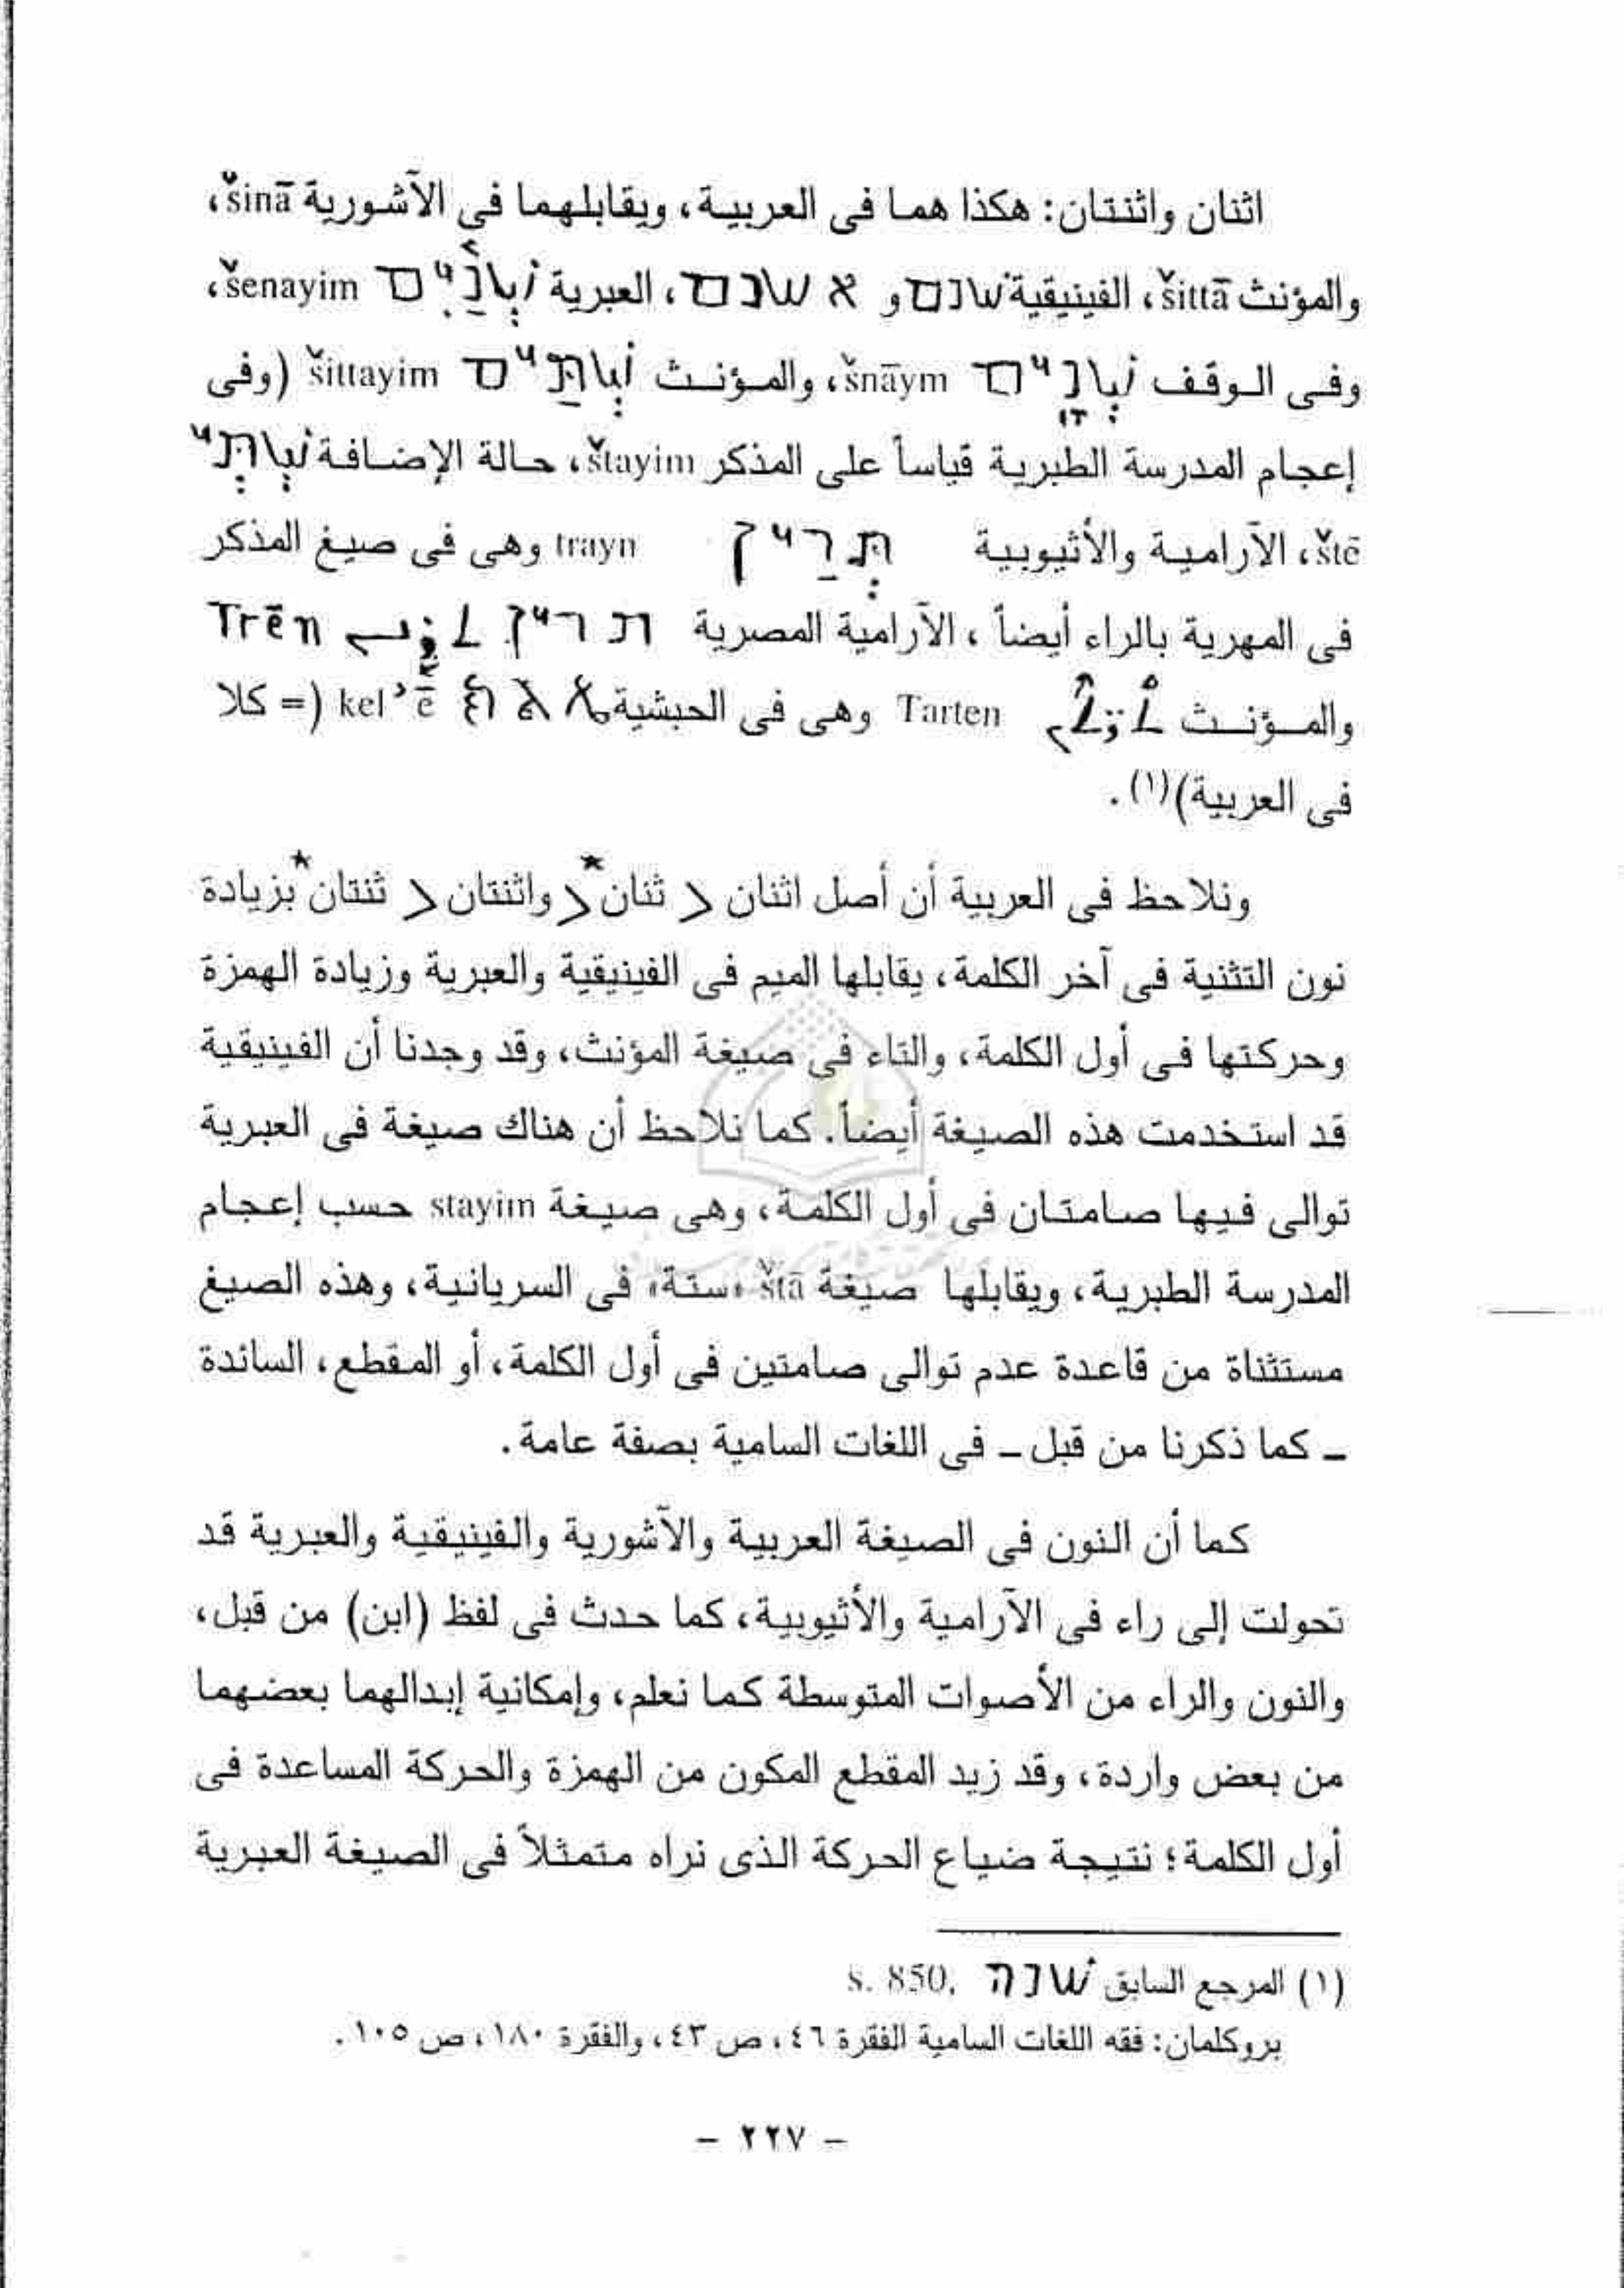 اثنان واثنتان: هكذا هما فى العربية، ويقابلهما فى الآشورية šinā،
والمؤنث šittā، الفينيقية שנם و אשנם، العبرية שְׁנַיִם šenayim،
وفى الوقف שְׁנָיִם šnāym، والمؤنث שְׁתַּיִם šittayim (وفى
إعجام المدرسة الطبرية قياساً على المذكر štayim، حالة الإضافة שְׁתֵּי
štē، الآرامية والأثيوبية תְּרַין trayn وهى فى صيغ المذكر
فى المهرية بالراء أيضاً، الآرامية المصرية תרין Trēn
والمؤنث Tarten وهى فى الحبشية kel’ē (= كلا
فى العربية)(١).
ونلاحظ فى العربية أن أصل اثنان > ثنان* > واثنتان > ثنتان* بزيادة
نون التثنية فى آخر الكلمة، يقابلها الميم فى الفينيقية والعبرية وزيادة الهمزة
وحركتها فى أول الكلمة، والتاء فى صيغة المؤنث، وقد وجدنا أن الفينيقية
قد استخدمت هذه الصيغة أيضاً. كما نلاحظ أن هناك صيغة فى العبرية
توالى فيها صامتان فى أول الكلمة، وهى صيغة stayim حسب إعجام
المدرسة الطبرية، ويقابلها صيغة štā «ستة» فى السريانية، وهذه الصيغ
مستثناة من قاعدة عدم توالى صامتين فى أول الكلمة، أو المقطع، السائدة
ـ كما ذكرنا من قبل ـ فى اللغات السامية بصفة عامة.
كما أن النون فى الصيغة العربية والآشورية والفينيقية والعبرية قد
تحولت إلى راء فى الآرامية والأثيوبية، كما حدث فى لفظ (ابن) من قبل،
والنون والراء من الأصوات المتوسطة كما نعلم، وإمكانية إبدالهما بعضهما
من بعض واردة، وقد زيد المقطع المكون من الهمزة والحركة المساعدة فى
أول الكلمة؛ نتيجة ضياع الحركة الذى نراه متمثلاً فى الصيغة العبرية
(١) المرجع السابق שׁנה s. 850,
بروكلمان: فقه اللغات السامية الفقرة ٤٦، ص ٤٣، والفقرة ١٨٠، ص ١٠٥.
– ٢٢٧ –